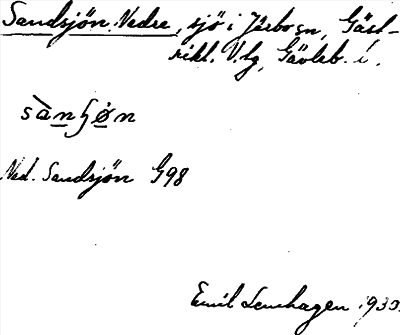 Sandsjön, Nedre, sjö i Järbo sn, Gäst-
rikl. V. tg, Gävleb. l.
sànʃøn
Ned. Sandsjön G98
Emil Lenhagen 1930.